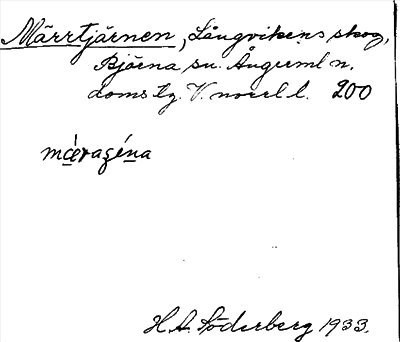 Märrtjärnen, Långvikens skog,
Bjärna sn. Ångerml n.
doms tg. V. norrl l. 200
märagéna
H. A. Söderberg 1933.